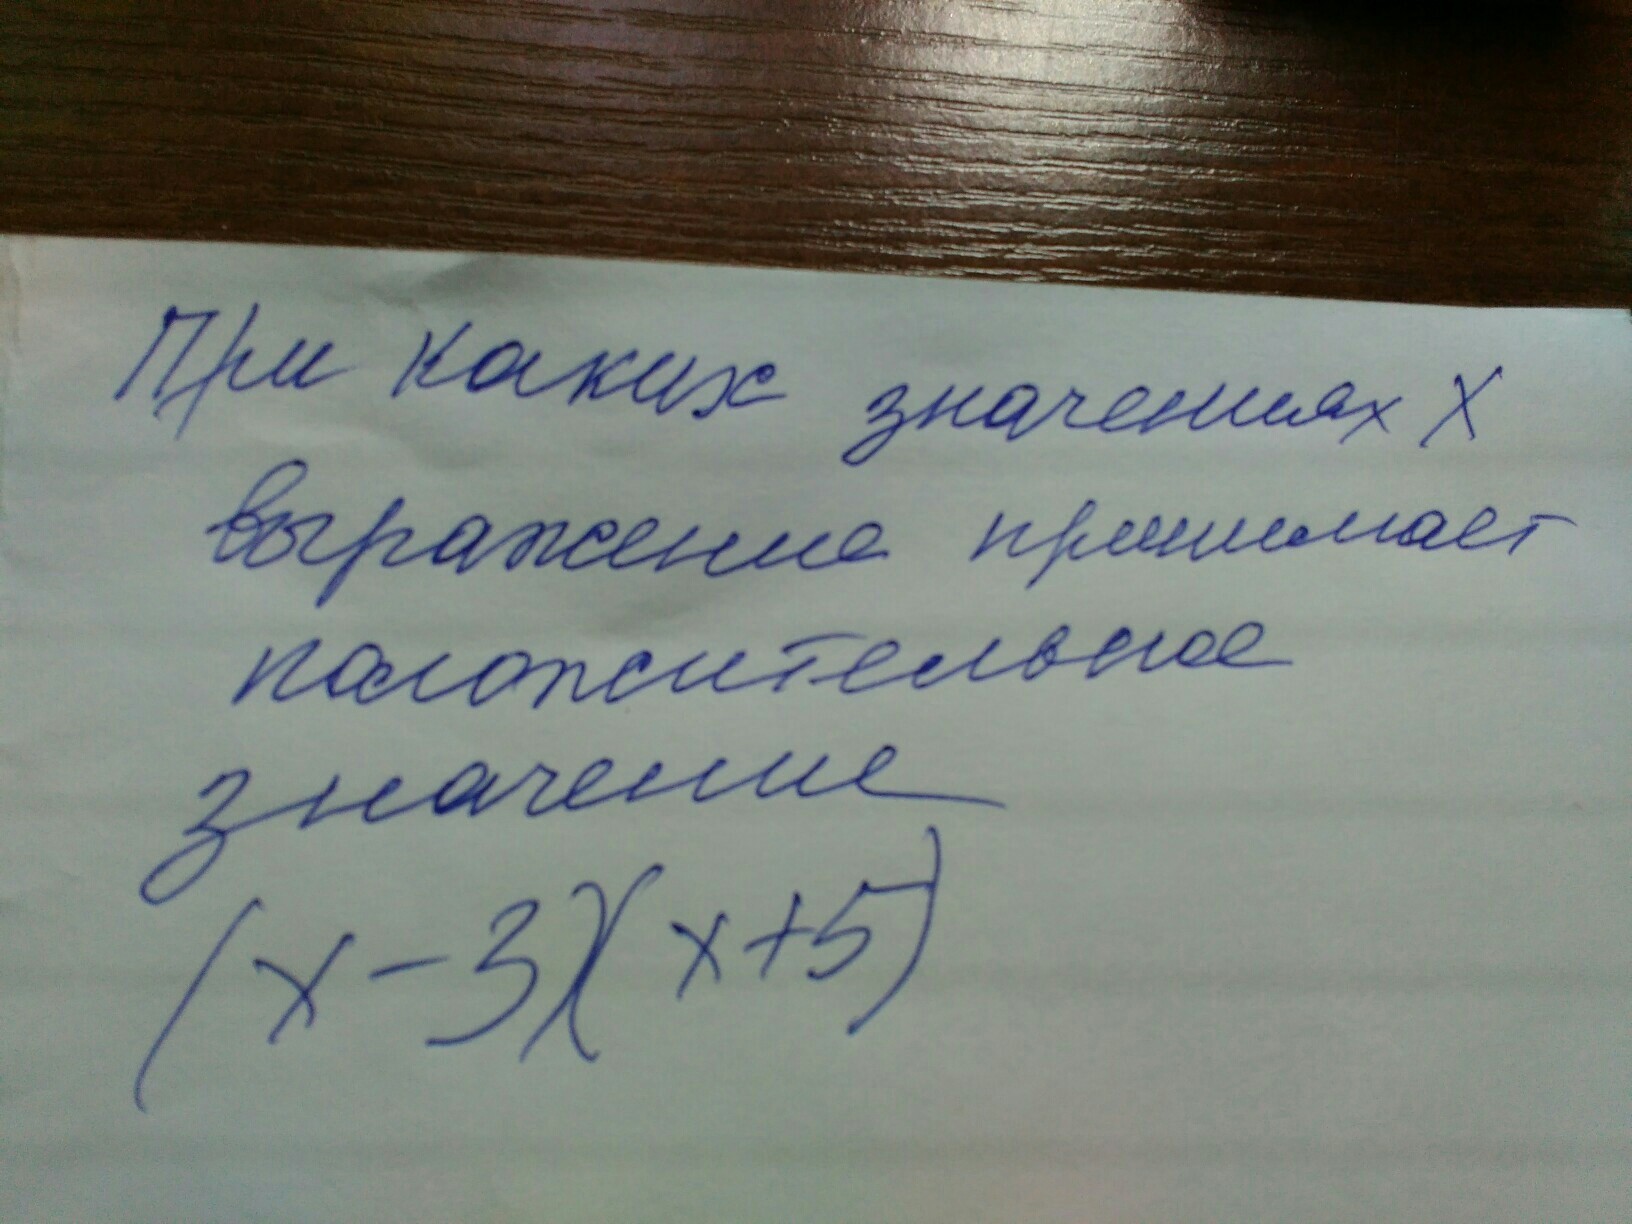 При каких значениях X
выражение принимает
положительное
значение
(x-3)(x+5)